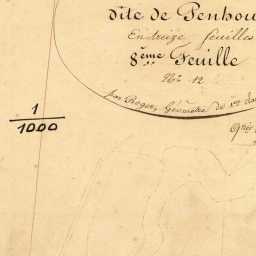 dite de Penhou
En treize feuilles
8ème Feuille
No 12
par Roger, Géomètre de 1re
1
1000